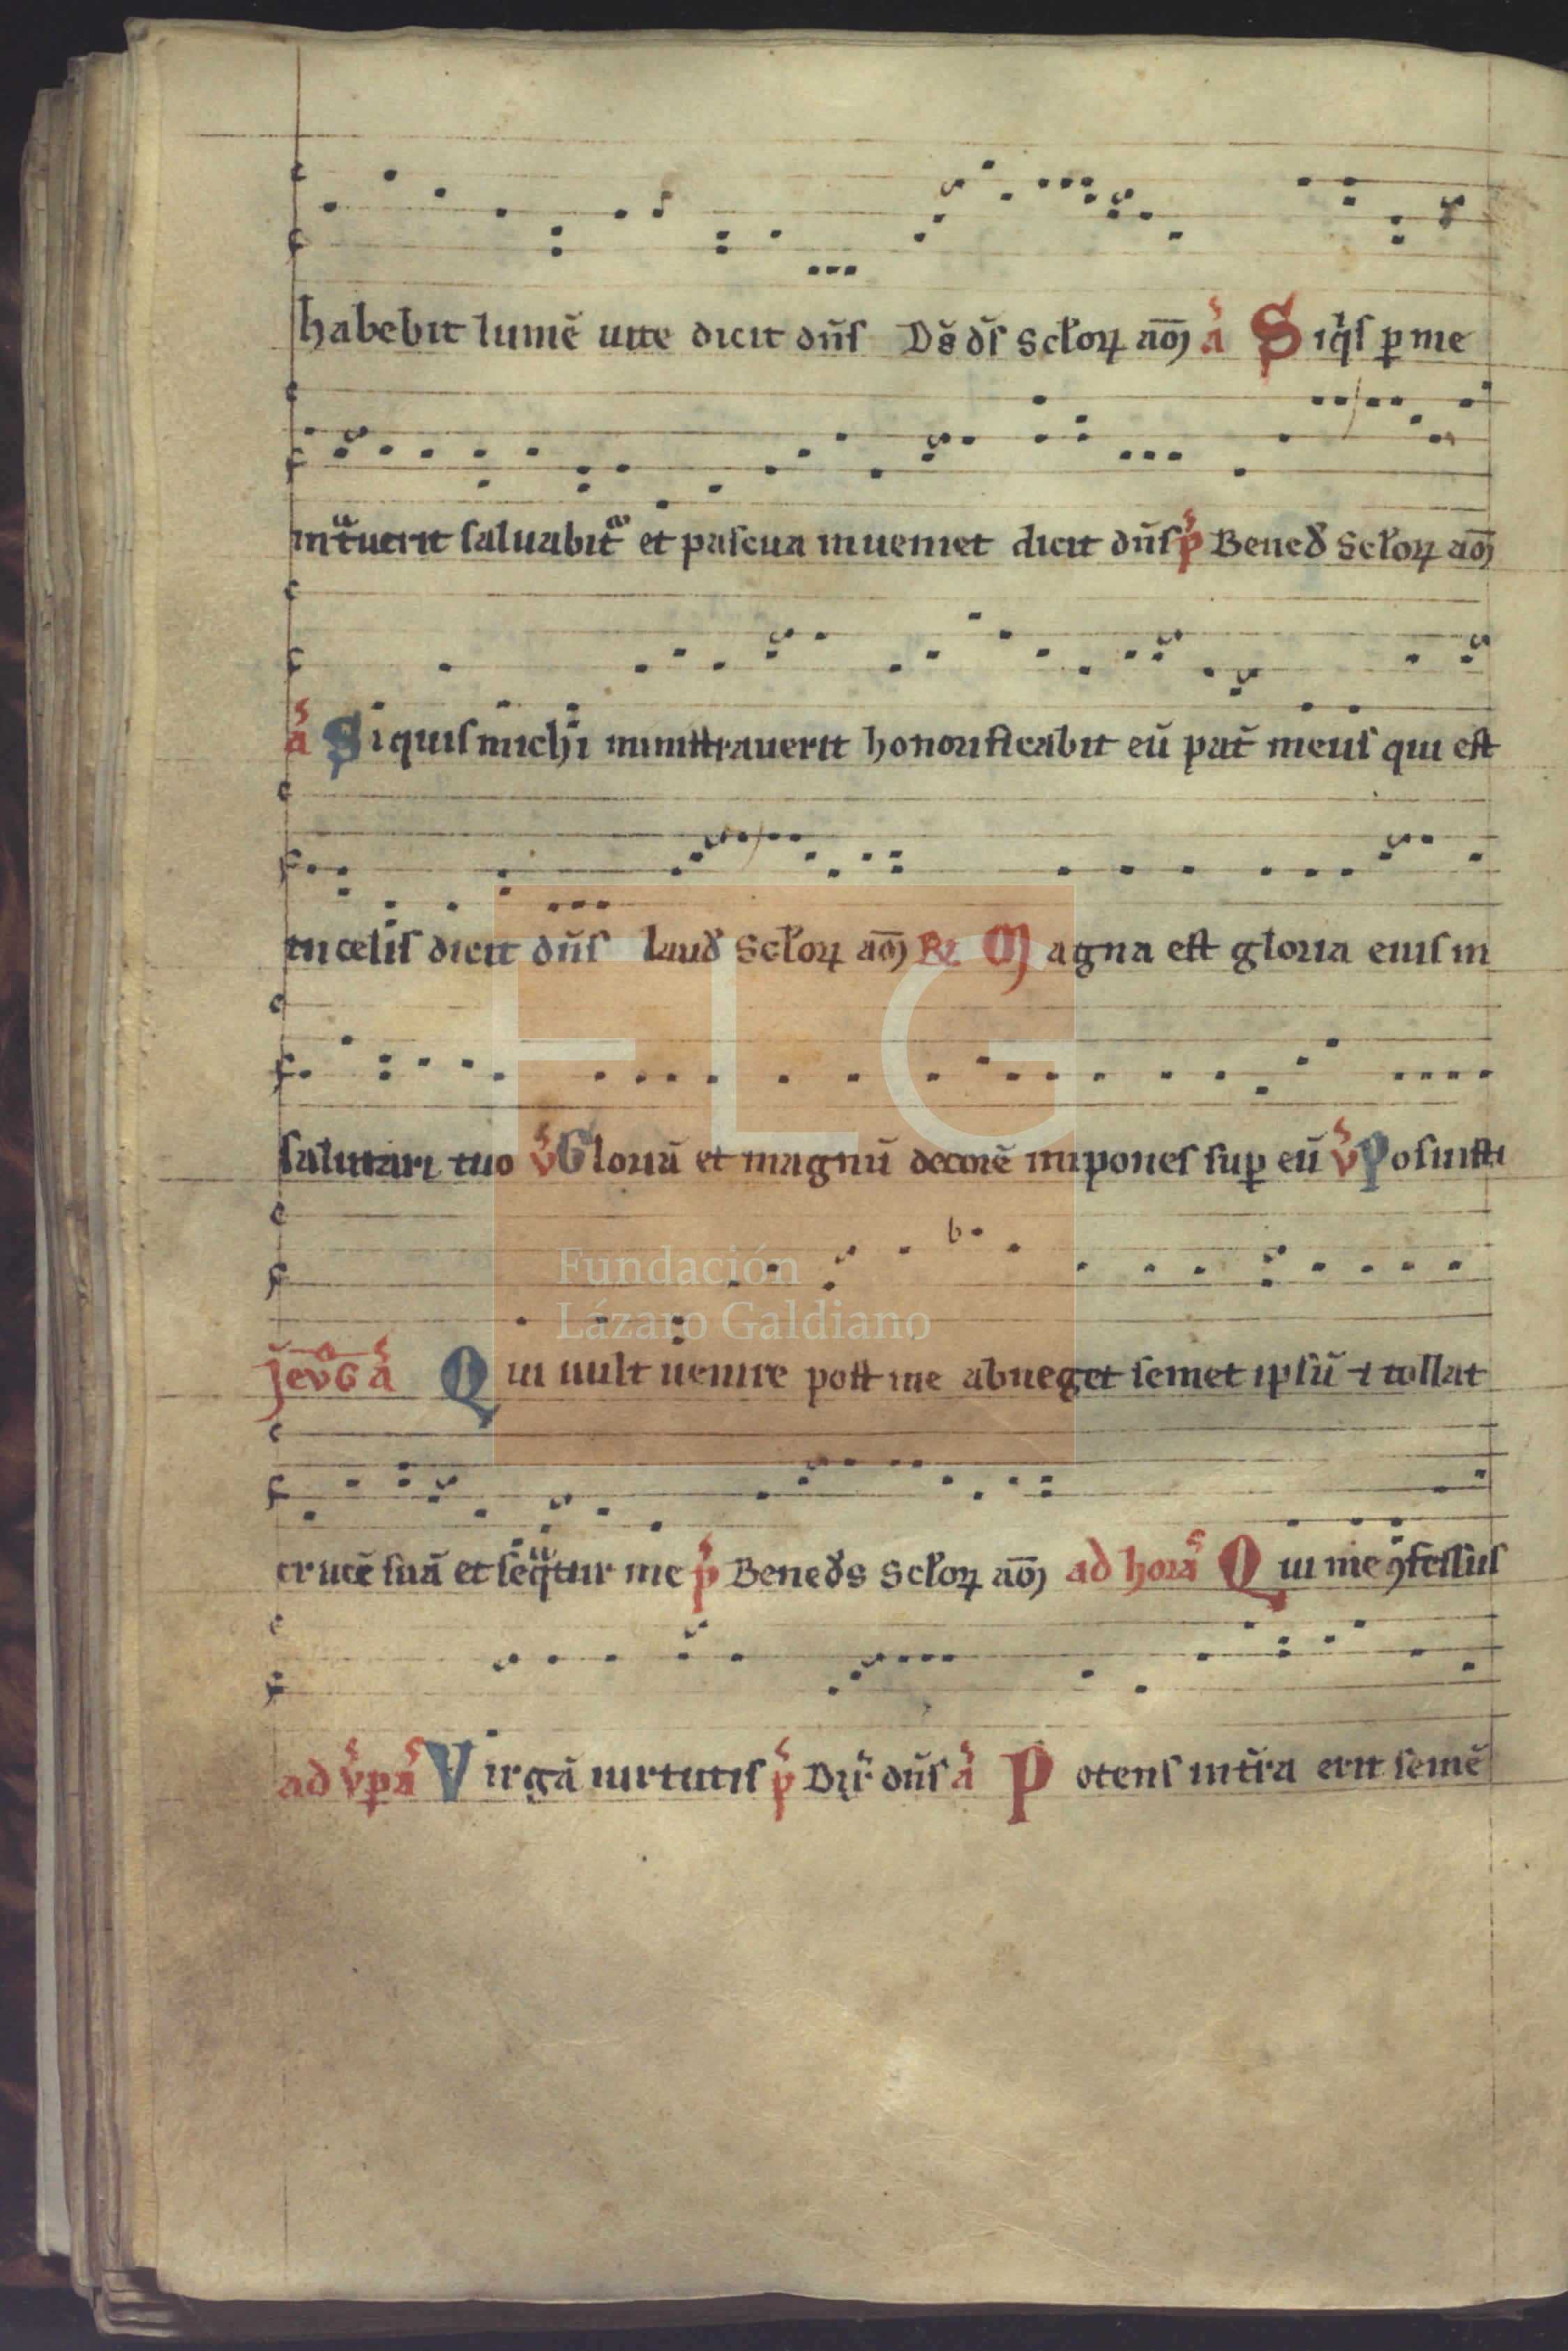 habebit lumē uite dicit dn̄s Ds̄ ds̄ sc̄loꝝ am̄ a S iqͥs ꝑ me
int͛uerit saluabit͛ et pascua inueniet dicit dn̄s p Bened̄ sc̄loꝝ am̄
a S iquis michi ministrauerit honorificabit eū pat̄ meus qui est
in celis dicit dn̄s laud̄ sc̄loꝝ am̄ ℟ M agna est gloria eius in
salutari tuo v̄ G loriā et magnū decorē impones suꝑ eū v̄ P osuisti
J ev̄G a Q ui uult uenire post me abneget semet ipsū ⁊ tollat
crucē suā et seq̄tur me p Bened̄s sc̄loꝝ am̄ ad hora Q ui me ꝯfessus
ad v̄ꝑa V irgā uirtutis p Dix̄ dn̄s a P otens in tr̄a erit semē
Fundación
Lázaro Galdiano
FLG